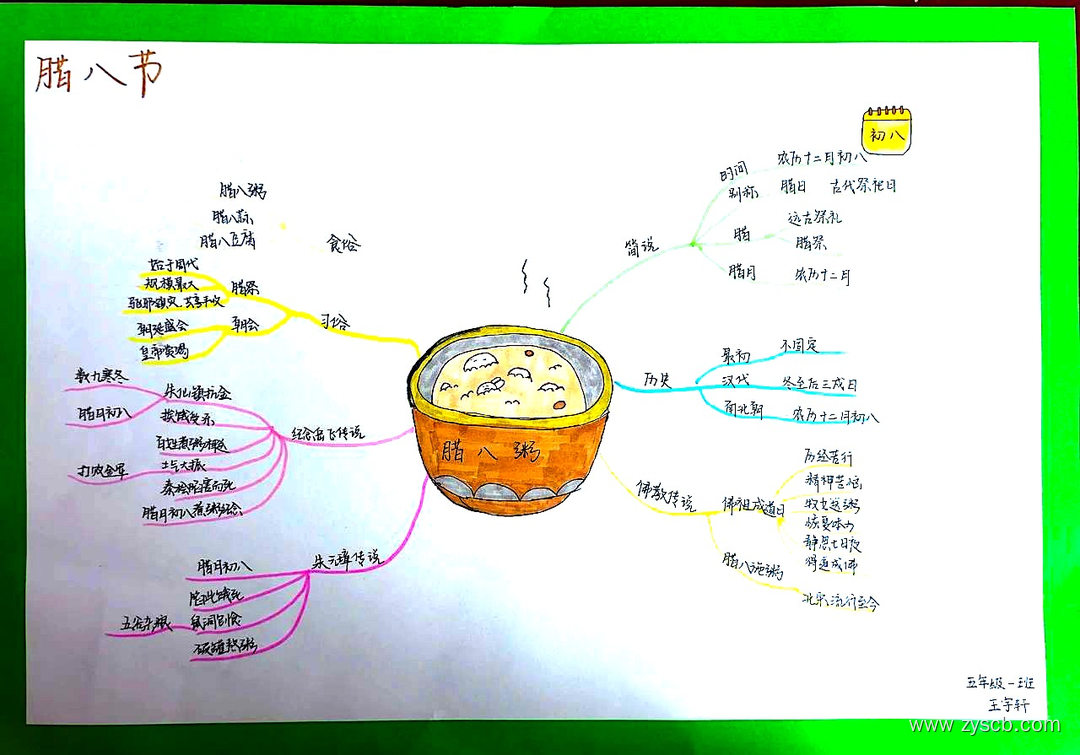 腊八节
初八
简说
时间
农历十二月初八
别称
腊日 古代祭祀日
腊
远古祭礼
腊祭
腊月
农历十二月
历史
最初
不固定
汉代
冬至后三戌日
南北朝
农历十二月初八
佛教传说
佛祖成道日
历经苦行
精神苦恼
牧女送粥
恢复体力
静思七日夜
得道成佛
腊八施粥
北京流行至今
食俗
腊八粥
腊八蒜
腊八豆腐
习俗
腊祭
始于周代
规模最大
驱邪禳灾 共享丰收
朝会
朝廷盛会
皇帝赏赐
纪念岳飞传说
朱仙镇抗金
数九寒冬
腊月初八
挨饿受冻
百姓煮粥相送
士气大振
打败金军
秦桧陷害而死
腊月初八煮粥纪念
朱元璋传说
腊月初八
鼠洞刨食
五谷杂粮
腊八粥
五年级一班
王宇轩
www.zyscb.com